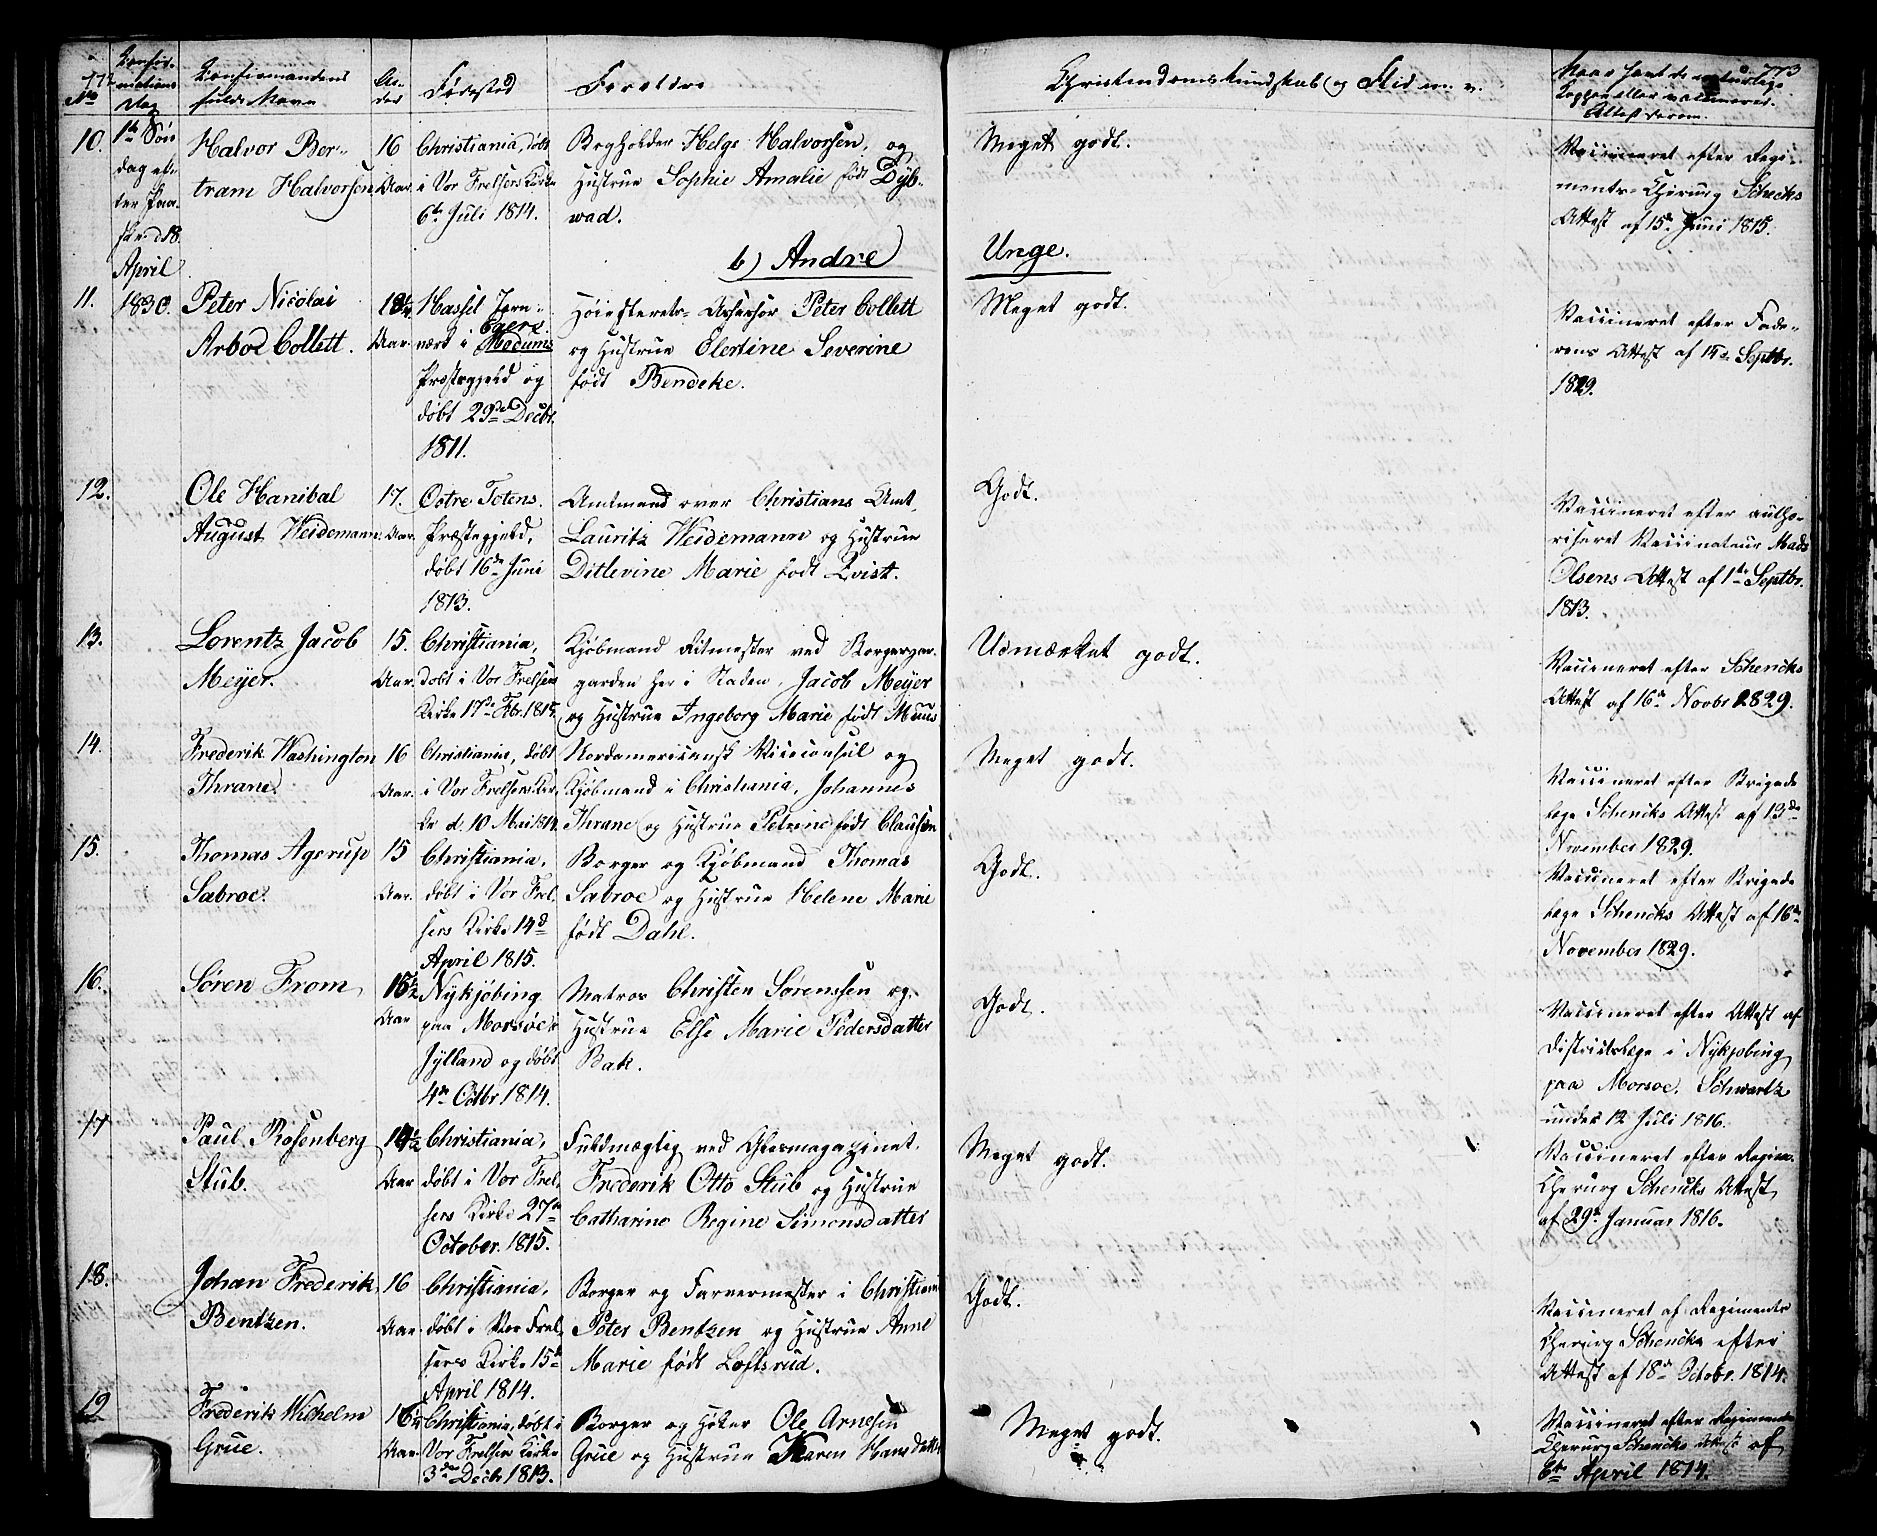 172
No
Confir-
mations
Dag
Confirmandens
fulde Navn
Al-
der
Fødested
Foreldre
Christendomskundskab og Flid m. v.
773
Naar havt de naturlige
Kopper eller vaccineret.
Attest derom.
10.
1ste Søn
dag ef-
ter Paa-
ske d. 18
April
1830.
Halvor Ber-
tram Halvorsen
16
Aar
Christiania, døbt
i Vor Frelsers Kirke
6te Juli 1814.
Bogholder Helge Halvorsen, og
Hustrue Sophie Amalie født Dyb-
wad.
Meget godt.
Vaccineret efter Regi-
ments-Chirurg Schencks
Attest af 15de Juni 1815.
b) Andre Unge.
11.
Peter Nicolai
Arboe Collett.
18¼
Aar.
Hassel Jern-
værk i Eger
Modums
Præstegjeld og
døbt 29de Decbr.
1811.
Høiesterets-Assessor Peter Collett
og Hustrue Elertine Severine
født Bendeke.
Meget godt.
Vaccineret efter Fade-
rens Attest af 15de Septbr.
1829.
12.
Ole Hanibal
August Weidemann
17.
Aar.
Østre Totens
Præstegjeld,
døbt 16de Juni
1813.
Amtmand over Christians Amt,
Lauritz Weidemann og Hustrue
Ditlevine Marie født Qvist.
Godt.
Vaccineret efter autho-
riseret Vaccinateur Mads
Olsens Attest af 1ste Septbr.
1813.
13.
Lorentz Jacob
Meyer.
15.
Aar.
Christiania,
døbt i Vor Frelsers
Kirke 17de Fbr. 1815.
Kjøbmand Ritmester ved Borger-
garden her i Staden, Jacob Meyer
og Hustrue Ingeborg Marie født Muus
Udmærket godt.
Vaccineret efter Schencks
Attest af 16de Novbr 1829.
14.
Frederik Washington
Thrane
16
Aar.
Christiania, døbt
i Vor Frelsers Kir-
ke d. 10 Mai 1814
Nordamericansk Viceconsul og
Kjøbmand i Christiania, Johannes
Thrane og Hustrue Petrine født Clausen
Meget godt.
Vaccineret efter Brigade
læge Schencks Attest af 13de
November 1829.
15.
Thomas Agerup
Sabroe.
15
Aar.
Christiania,
døbt i Vor Frel-
sers Kirke 14de
April 1815.
Borger og Kjøbmand Thomas
Sabroe og Hustrue Helene Marie
født Dahl.
Godt.
Vaccineret efter Brigade
læge Schencks Attest af 16de
November 1829.
16.
Søren From
15½
Aar
Nykjøbing
paa Morsøe i
Jylland og døbt
4de Octbr 1814.
Matros Christen Sørensen og
Hustrue Else Marie Pedersdatter
Bak.
Godt.
Vaccineret efter Attest af
Districtslæge i Nykjøbing
paa Morsøe, Schwartz
under 12 Juli 1816.
17
Paul Rosenberg
Stub.
14½
Aar
Christiania,
døbt i Vor Frel-
sers Kirke 27de
October 1815.
Fuldmægtig ved Glasmagazinet,
Frederik Otto Stub og Hustrue
Catharine Regine Simonsdatter
Meget godt.
Vaccineret efter Regim.
Chirurg Schencks Attest
af 29de Januar 1816.
18.
Johan Frederik
Bentzen.
16
Aar.
Christiania,
døbt i Vor Frel-
sers Kirke 15de
April 1814.
Borger og Farvermester i Christiania
Peter Bentzen og Hustrue Anne
Marie født Loftsrud.
Godt.
Vaccineret af Regiments
Chirurg Schencke efter
Attest af 18de Octobr. 1814.
19
Frederik Wilhelm
Grue.
16¼
Aar
Christiania, døbt i
Vor Frelsers Kirke
3de Decbr 1813.
Borger og Høker Ole Arnesen
Grue og Hustrue Karen Hansdatter
Meget godt.
Vaccineret efter Regiments
Chirurg Schencks Attest af
6te April 1814.